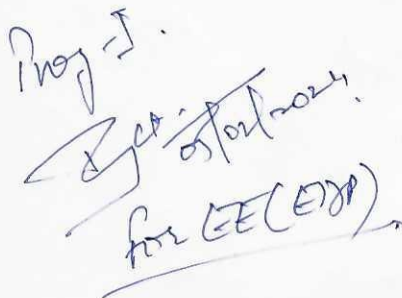 Prog-I.
05/02/2024.
for EE (EDP).